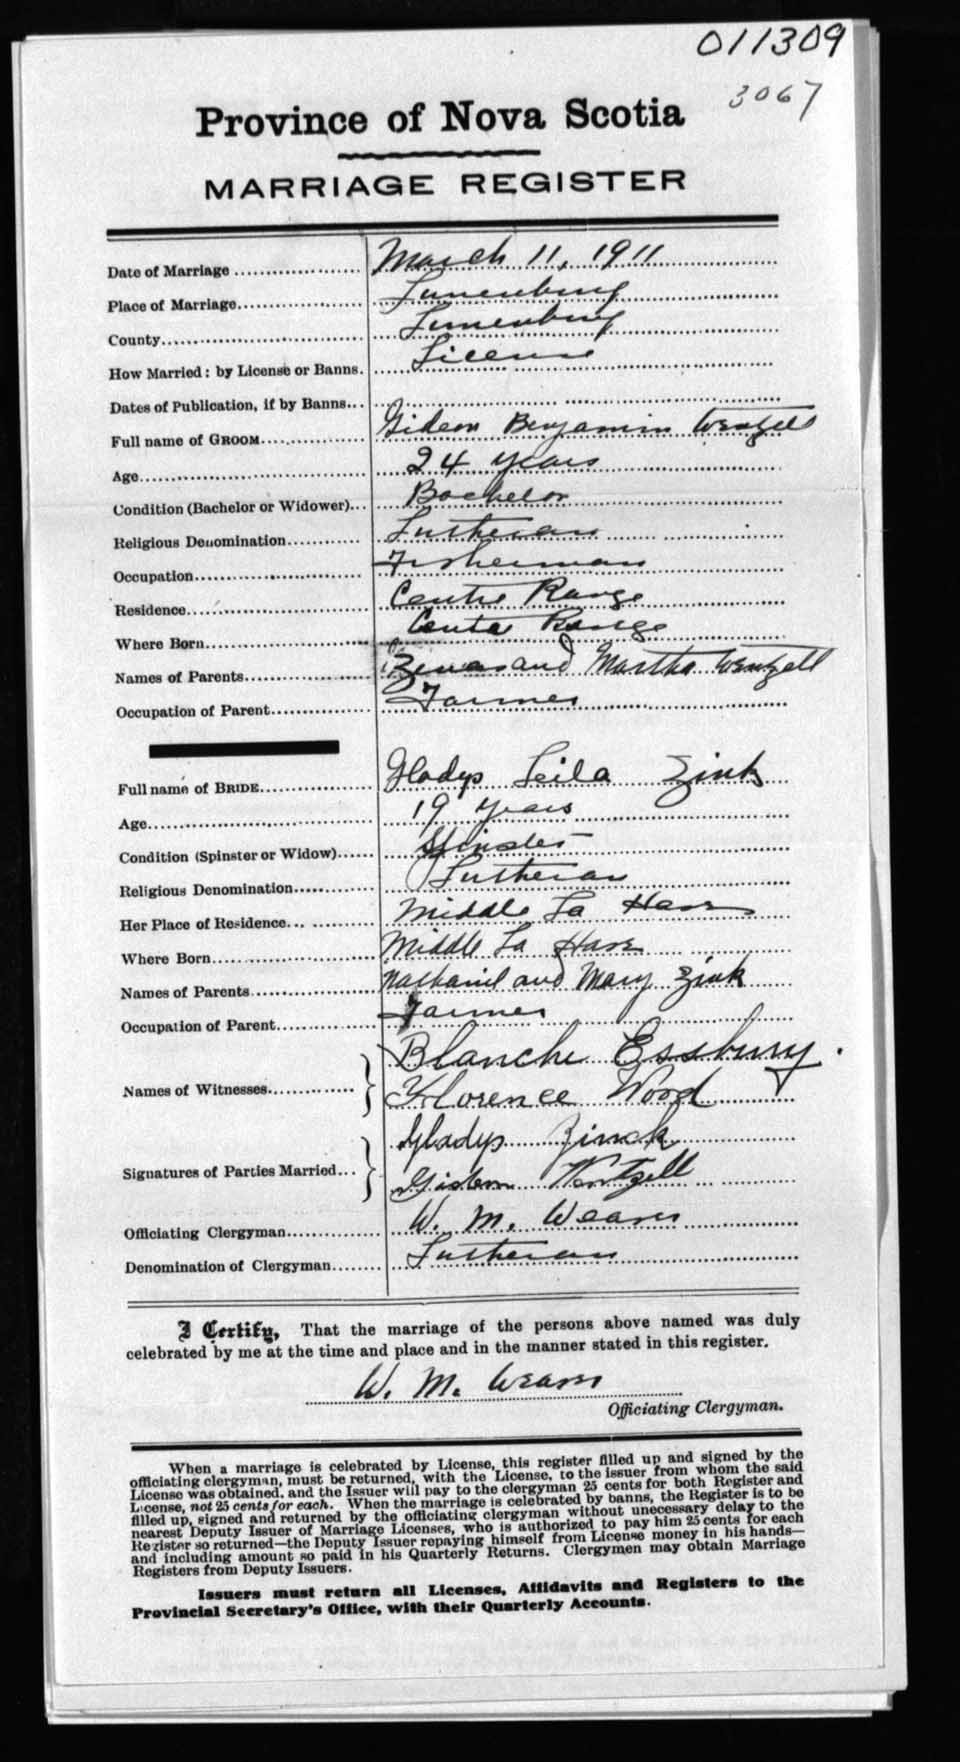 011309
3067
Province of Nova Scotia
MARRIAGE REGISTER
Date of Marriage .................... March 11, 1911
Place of Marriage.................... Lunenburg
County.................... Lunenburg
How Married: by License or Banns. License
Dates of Publication, if by Banns...
Full name of GROOM.................... Gideon Benjamin Wentzell
Age.................... 24 years
Condition (Bachelor or Widower)... Bachelor
Religious Denomination............ Lutheran
Occupation.................... Fisherman
Residence.................... Centre Range
Where Born.................... Centre Range
Names of Parents.................... Zenas and Martha Wentzell
Occupation of Parent............... Farmer
Full name of BRIDE.................... Gladys Leila Zink
Age.................... 19 years
Condition (Spinster or Widow)...... Spinster
Religious Denomination............ Lutheran
Her Place of Residence... ............ Middle La Have
Where Born.................... Middle La Have
Names of Parents.................... Nathaniel and Mary Zink
Occupation of Parent............... Farmer
Blanche Essbury.
Names of Witnesses...............
Florence Wood
Gladys Zinck
Signatures of Parties Married...
Gideon Wentzell
Officiating Clergyman............... W. M. Weaver
Denomination of Clergyman........ Lutheran
I Certify, That the marriage of the persons above named was duly
celebrated by me at the time and place and in the manner stated in this register.
W. M. Weaver
Officiating Clergyman.
When a marriage is celebrated by License, this register filled up and signed by the
officiating clergyman, must be returned, with the License, to the issuer from whom the said
License was obtained, and the Issuer will pay to the clergyman 25 cents for both Register and
License, not 25 cents for each. When the marriage is celebrated by banns, the Register is to be
filled up, signed and returned by the officiating clergyman without unnecessary delay to the
nearest Deputy Issuer of Marriage Licenses, who is authorized to pay him 25 cents for each
Register so returned—the Deputy Issuer repaying himself from License money in his hands—
and including amount so paid in his Quarterly Returns. Clergymen may obtain Marriage
Registers from Deputy Issuers.
Issuers must return all Licenses, Affidavits and Registers to the
Provincial Secretary's Office, with their Quarterly Accounts.